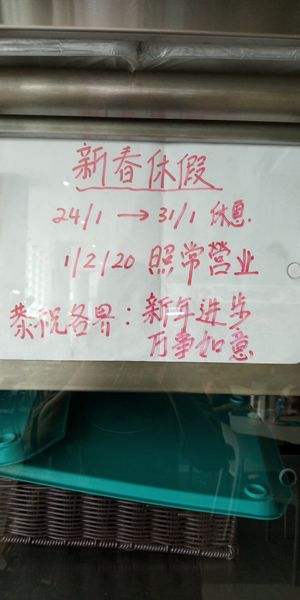 新春休假
24/1 → 31/1 休息.
1/2/20 照常营业
恭祝各界：新年进步
万事如意